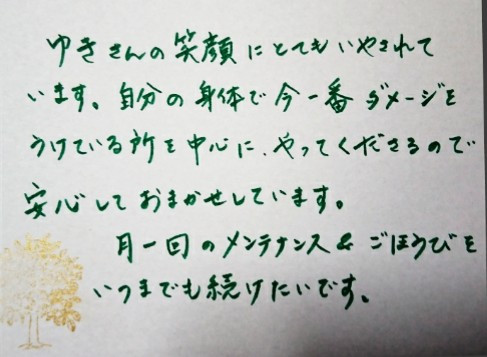 ゆきさんの笑顔にとてもいやされて
います。自分の身体で今一番ダメージを
うけている所を中心に、やってくださるので
安心しておまかせしています。
月一回のメンテナンス&ごほうびを
いつまでも続けたいです。